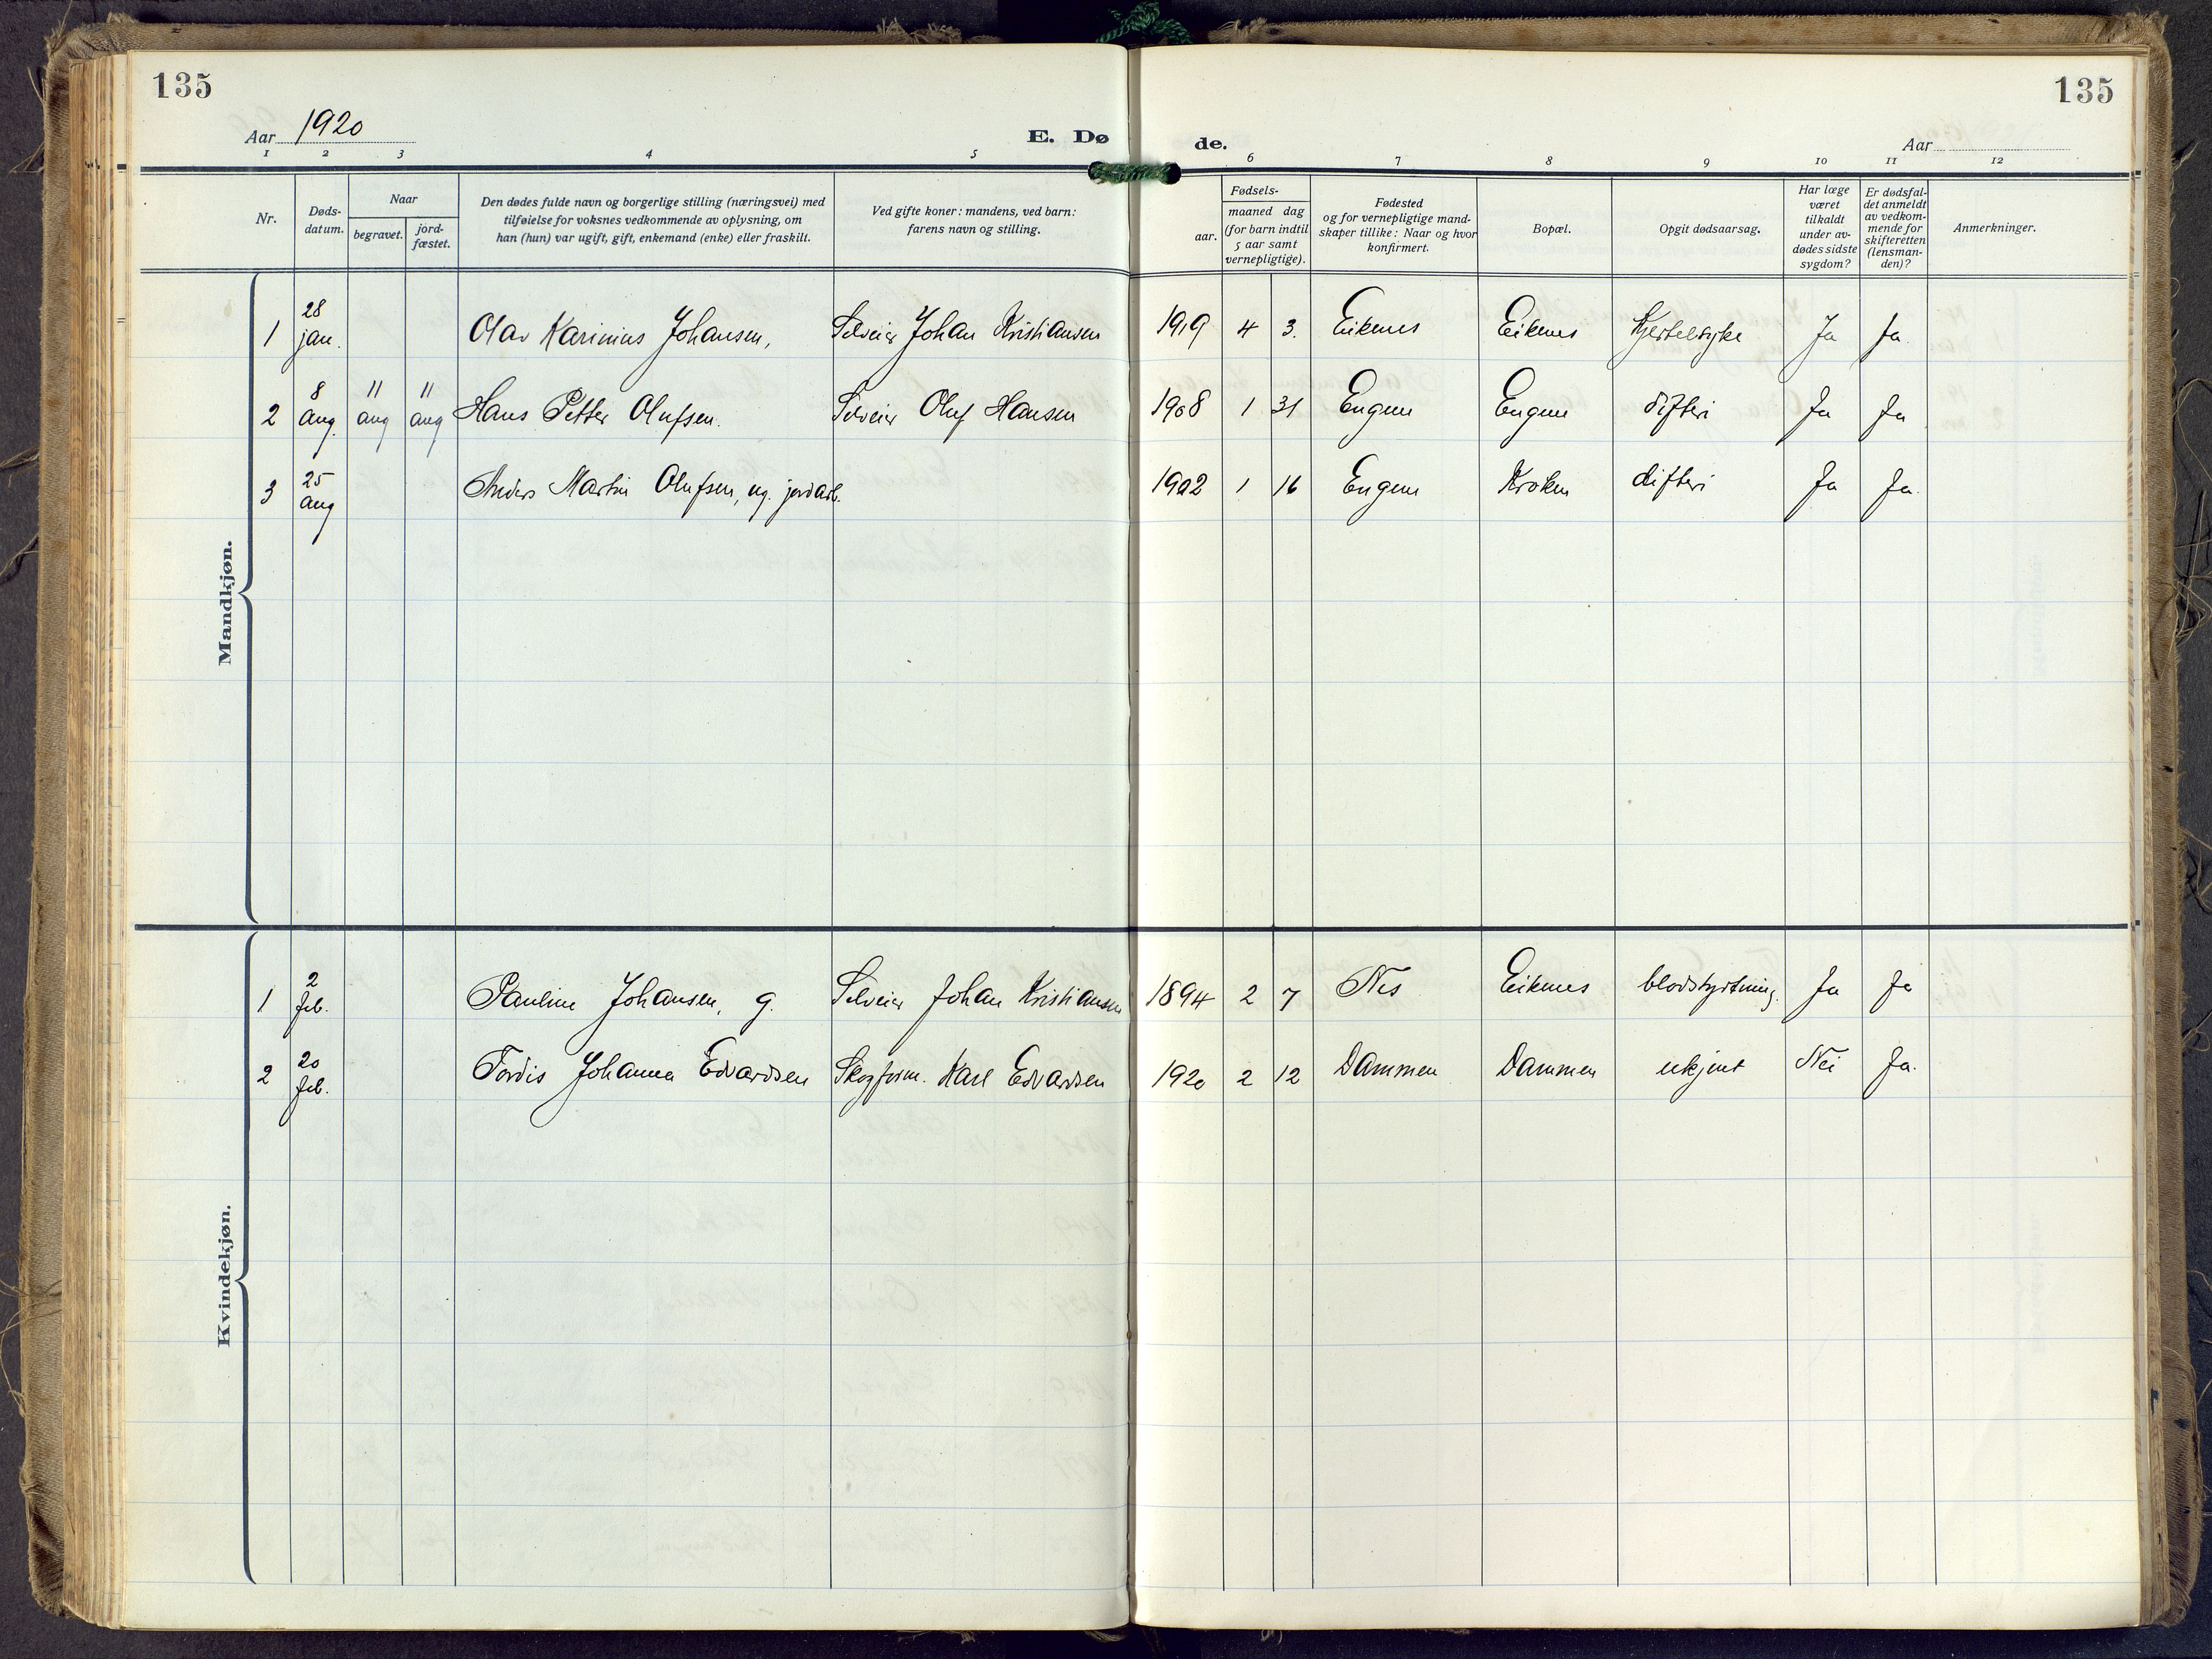 135
135
Aar 1920
E. Dø
de.
Aar
1 2 3 4 5 6 7 8 9 10 11 12
Nr.
Døds-
datum.
Naar
begravet.
jord-
fæstet.
Den dødes fulde navn og borgerlige stilling (næringsvei) med
tilføielse for voksnes vedkommende av oplysning, om
han (hun) var ugift, gift, enkemand (enke) eller fraskilt.
Ved gifte koner: mandens, ved barn:
farens navn og stilling.
Fødsels-
aar.
maaned dag
(for barn indtil
5 aar samt
vernepligtige).
Fødested
og for vernepligtige mand-
skaper tillike: Naar og hvor
konfirmert.
Bopæl.
Opgit dødsaarsag.
Har læge
været
tilkaldt
under av-
dødes sidste
sygdom?
Er dødsfal-
det anmeldt
av vedkom-
mende for
skifteretten
(lensman-
den)?
Anmerkninger.
Mandkjøn.
1 28 jan. Olav Karinius Johansen, Selveier Johan Kristiansen 1919 4 3. Eiknes Eiknes Kjertelsyke Ja Ja.
2 8 aug. 11 aug 11 aug Hans Petter Olufsen. Selveier Oluf Hansen 1908 1 31 Engene Engene difteri Ja Ja
3 25 aug Anders Martin Olufsen, ug. jordarb. 1902 1 16 Engene Kroken difteri Ja Ja.
Kvindekjøn.
1 2 feb. Pauline Johansen, g. Selveier Johan Kristiansen 1894 2 7 Nes Eiknes blodstyrtning. Ja Ja
2 20 feb. Tordis Johanna Edvardsen Skogform. Karl Edvardsen 1920 2 12 Dammen Dammen ukjent Nei Ja.